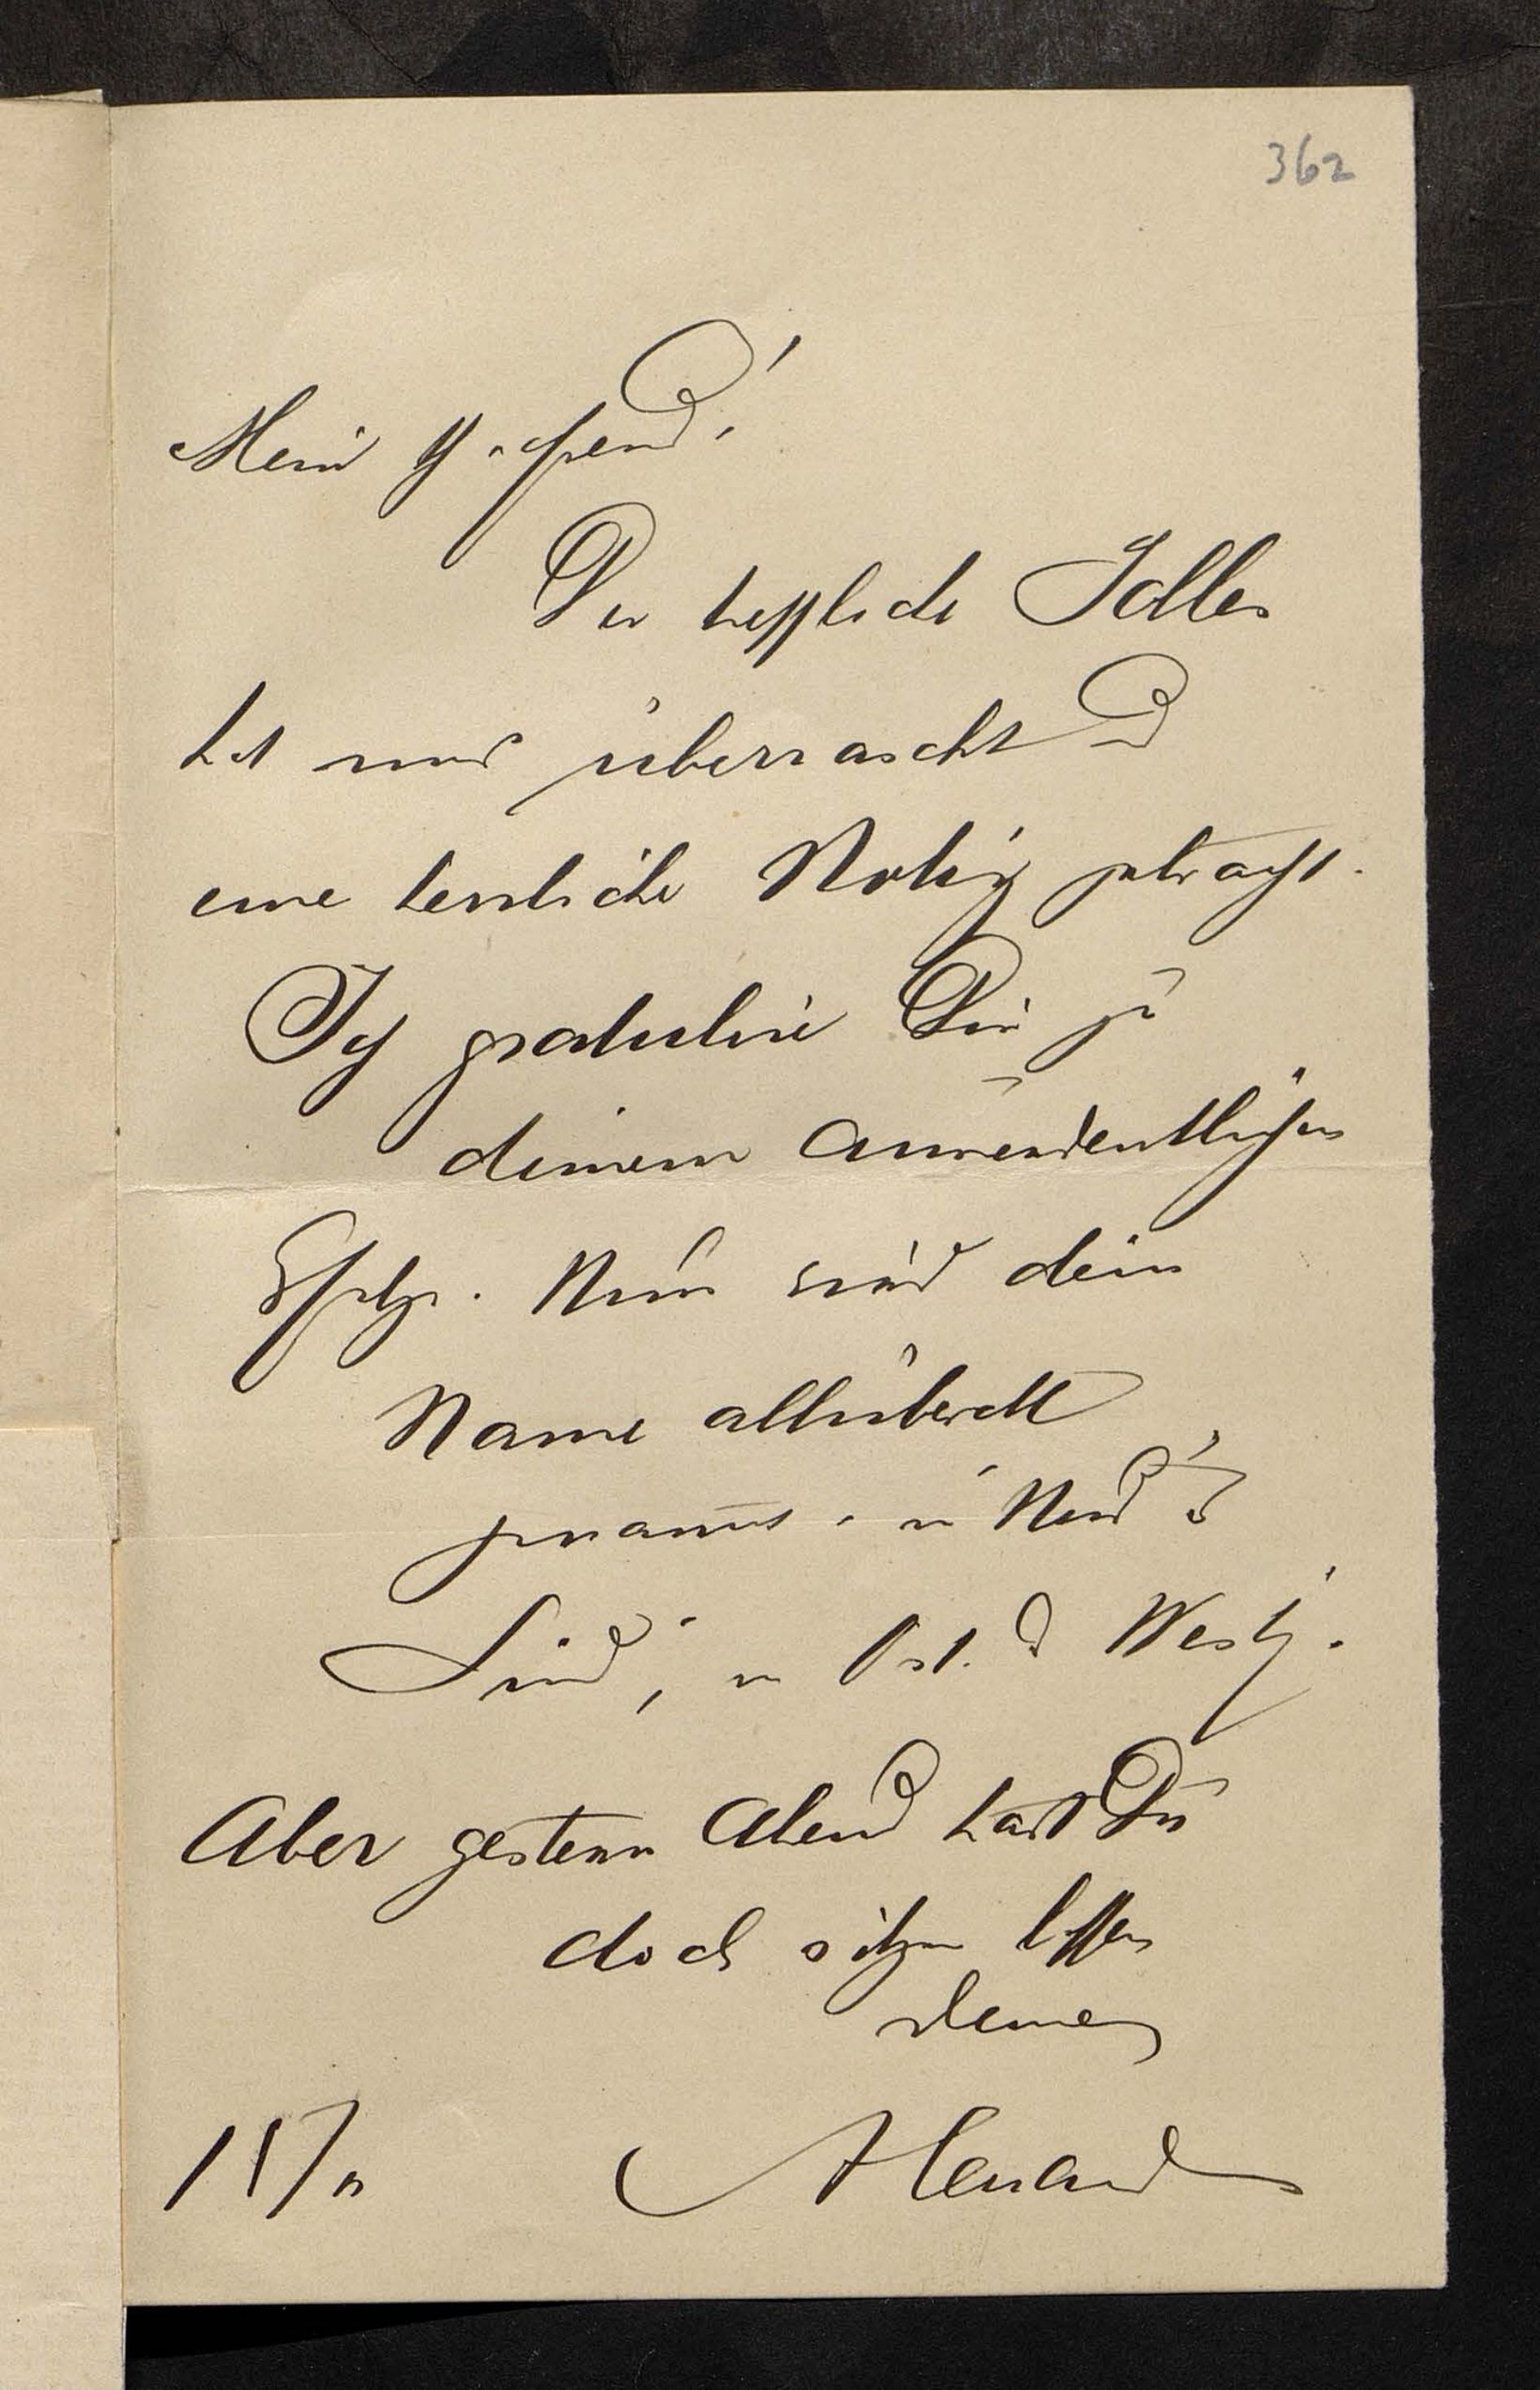 362
Mein Freund!
Der treffliche Jolles
hat mich überrascht und
eine herrliche Notiz gebracht.
Ich gratulire Dir zu
deinem ausserordentlichen
Erfolge. Nun wird dein
Name allüberall
genannt in Nord und
Süd, in Ost und West.
Aber gestern Abend hast Du
doch sitzen lassen
deinen